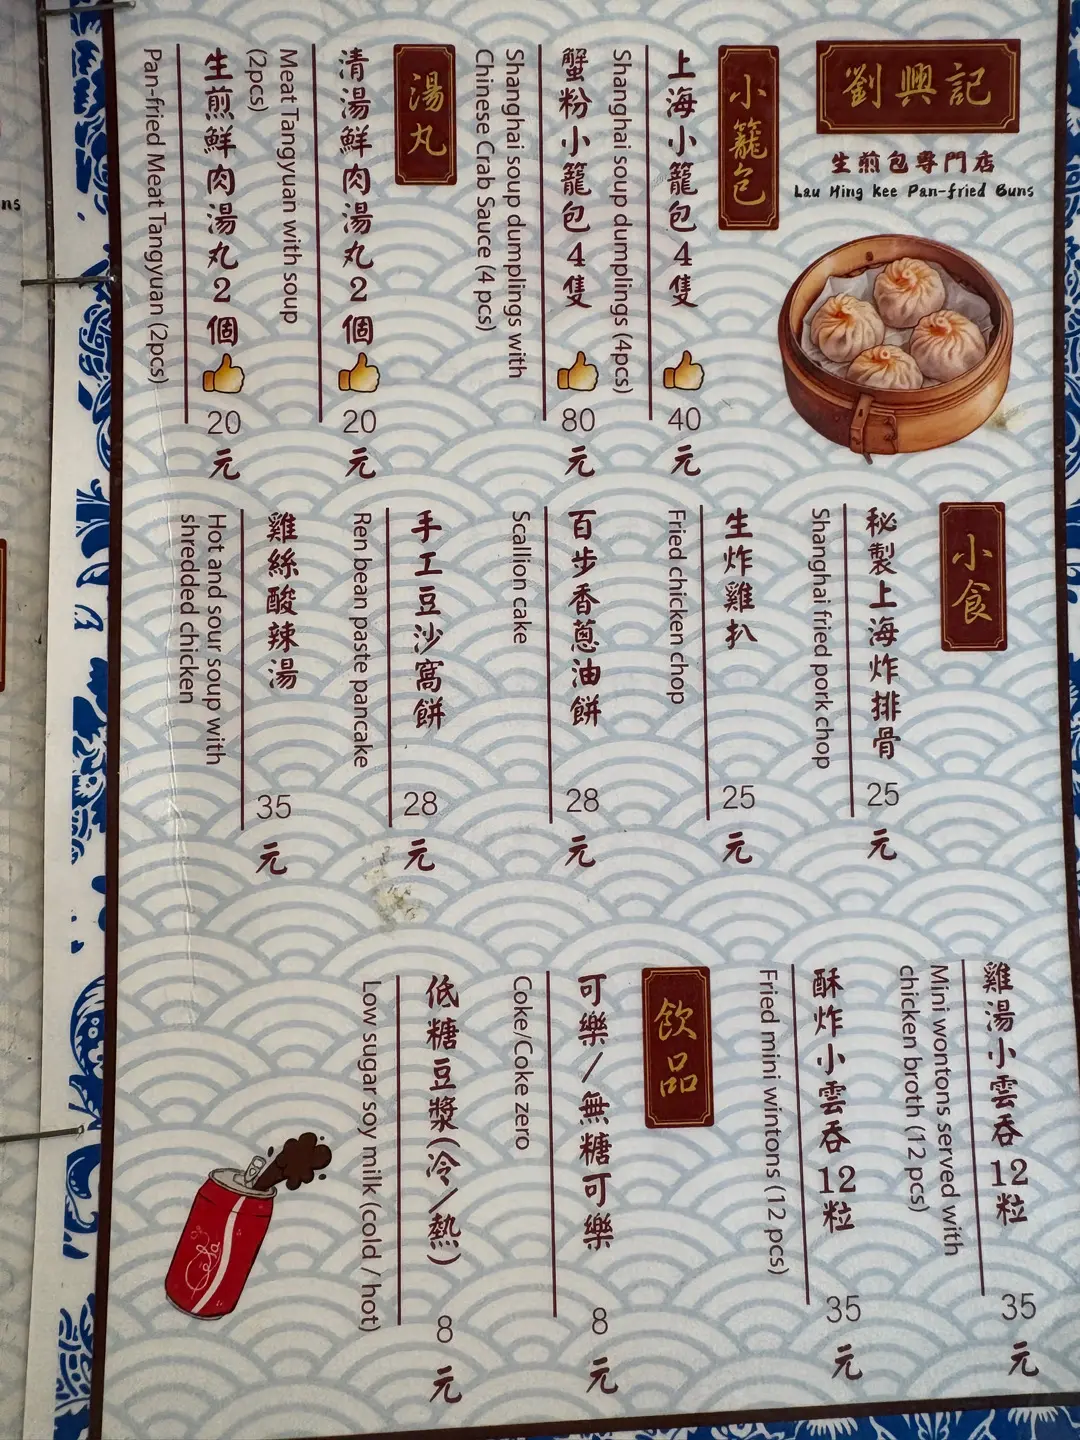 劉興記
生煎包專門店
Lau Hing Kee Pan-fried Buns
小籠包
上海小籠包4隻 40元
Shanghai soup dumplings (4pcs)
蟹粉小籠包4隻 80元
Shanghai soup dumplings with
Chinese Crab Sauce (4 pcs)
湯丸
清湯鮮肉湯丸2個 20元
Meat Tangyuan with soup
(2pcs)
生煎鮮肉湯丸2個 20元
Pan-fried Meat Tangyuan (2pcs)
小食
秘製上海炸排骨 25元
Shanghai fried pork chop
生炸雞扒 25元
Fried chicken chop
百步香蔥油餅 28元
Scallion cake
手工豆沙窩餅 28元
Ren bean paste pancake
雞絲酸辣湯 35元
Hot and sour soup with
shredded chicken
雞湯小雲吞12粒 35元
Mini wontons served with
chicken broth (12 pcs)
酥炸小雲吞12粒 35元
Fried mini wintons (12 pcs)
飲品
可樂/無糖可樂 8元
Coke/Coke zero
低糖豆漿(冷/熱) 8元
Low sugar soy milk (cold / hot)
ns